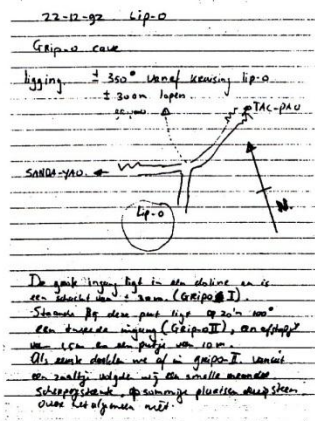 22-12-92 Lip-O
Grip-o cave
ligging ± 350° vanaf kruising lip-o
± 300m lopen.
TAC-PAO
SANDA-YAO
Lip-o
N.
De grote ingang ligt in een doline en is
een schacht van ± 30m. (GRIPO I).
Staande bij deze put ligt op zo'n 100°
een tweede ingang (GRIPO II), een afstapje
van 1,5m en een putje van 10m.
Als eerste daalden we af in gripo II. vanuit
een zaaltje volgden wij een smalle meander
scherpe steenk, op sommige plaatsen diep steen
over het algemeen niet.